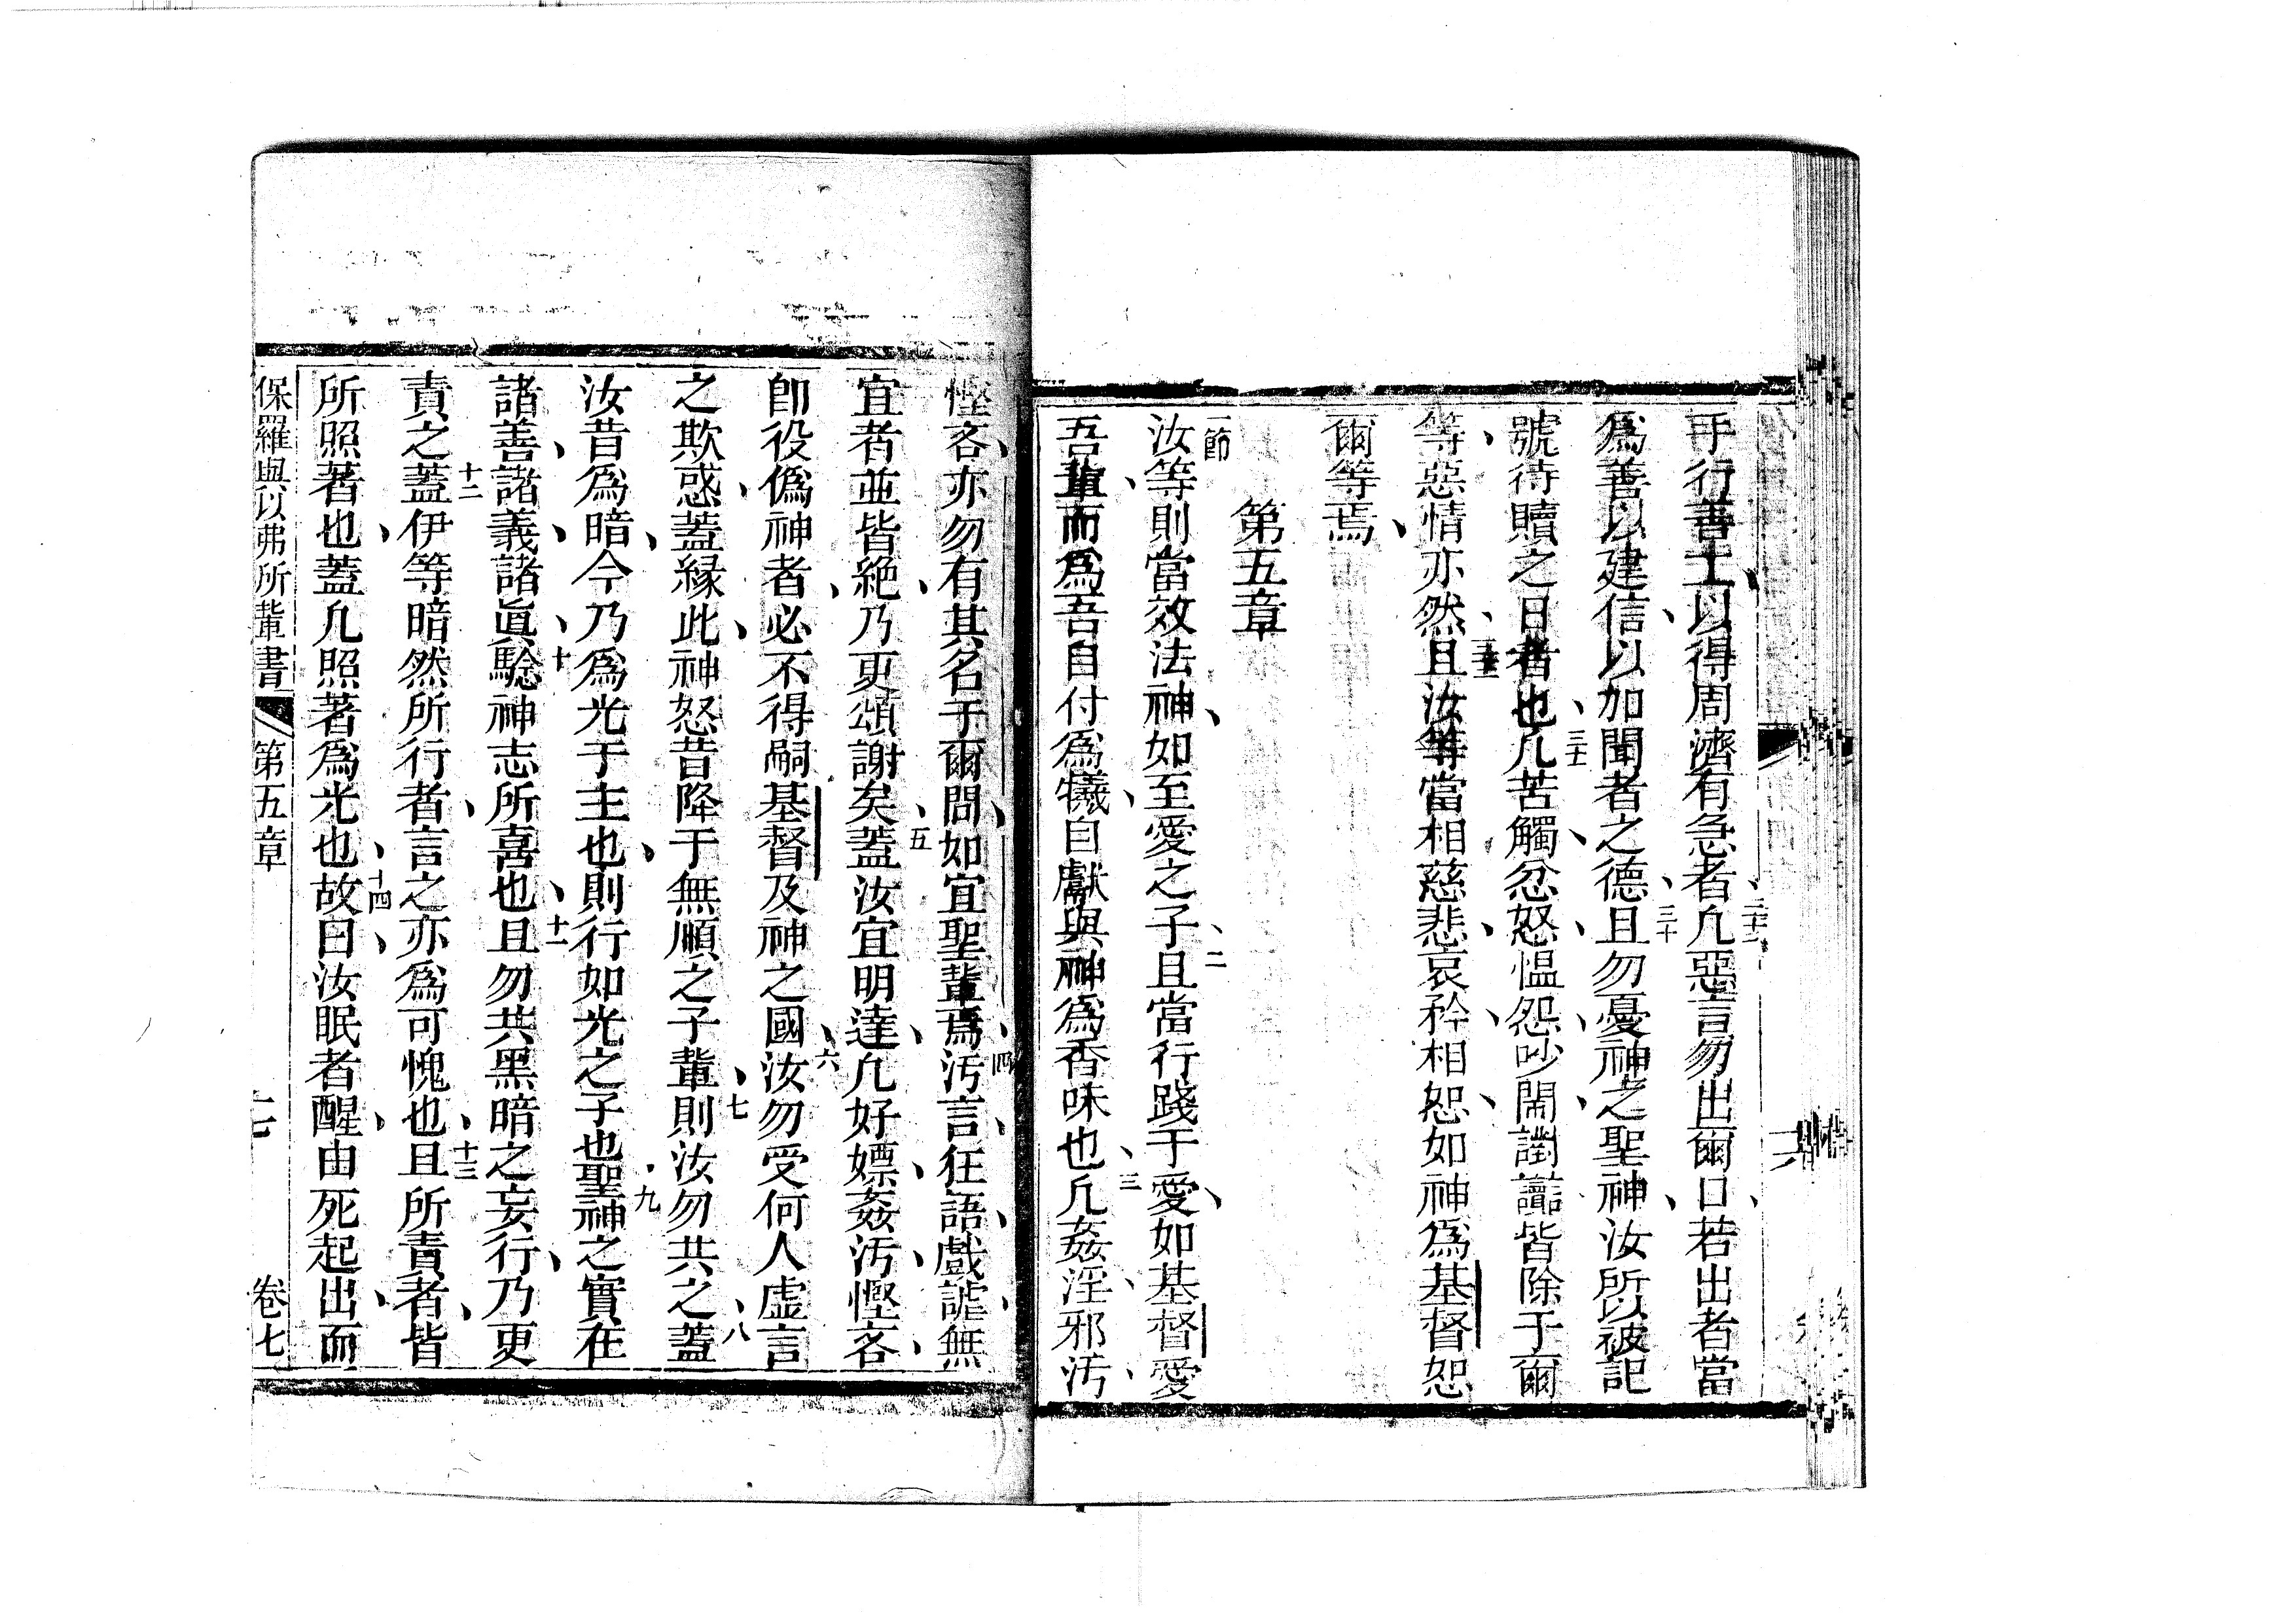 手行善工、以得周濟有急者、二十九凡惡言勿出爾口、若出者當
爲善以建信、以加聞者之德、三十且勿憂神之聖神、汝所以被記
號待贖之日者也、三十一凡苦觸、忿怒、愠怨、吵鬧、讟皆除于爾
等、惡情亦然、三十二且汝等當相慈悲、哀矜、相恕、如神爲基督恕
爾等焉、
第五章
一節汝等則當效法神、如至愛之子、二且當行踐于愛、如基督愛
吾輩、而爲吾自付爲犧、自獻與神爲香味也、三凡姦淫、邪污、
慳吝、亦勿有其名于爾問、如宜聖輩焉、四污言、狂語、戲謔、無
宜者並皆絕、乃更頌謝矣、五蓋汝宜明達、凡好嫖姦、污、慳吝、
卽役僞神者、必不得嗣基督及神之國、六汝勿受何人虛言
之欺惑、蓋緣此、神怒昔降于無順之子輩、七則汝勿共之、八蓋
汝昔爲暗、今乃爲光于主也、則行如光之子也、九聖神之實在
諸善、諸義、諸眞、十驗神志所喜也、十一且勿共黑暗之妄行、乃更
責之、十二蓋伊等暗然所行者、言之亦爲可愧也、十三且所責者、皆
所照著也、蓋凡照著爲光也、十四故曰、汝眠者醒、由死起出、而
保羅與以弗所輩書 第五章 七 卷七